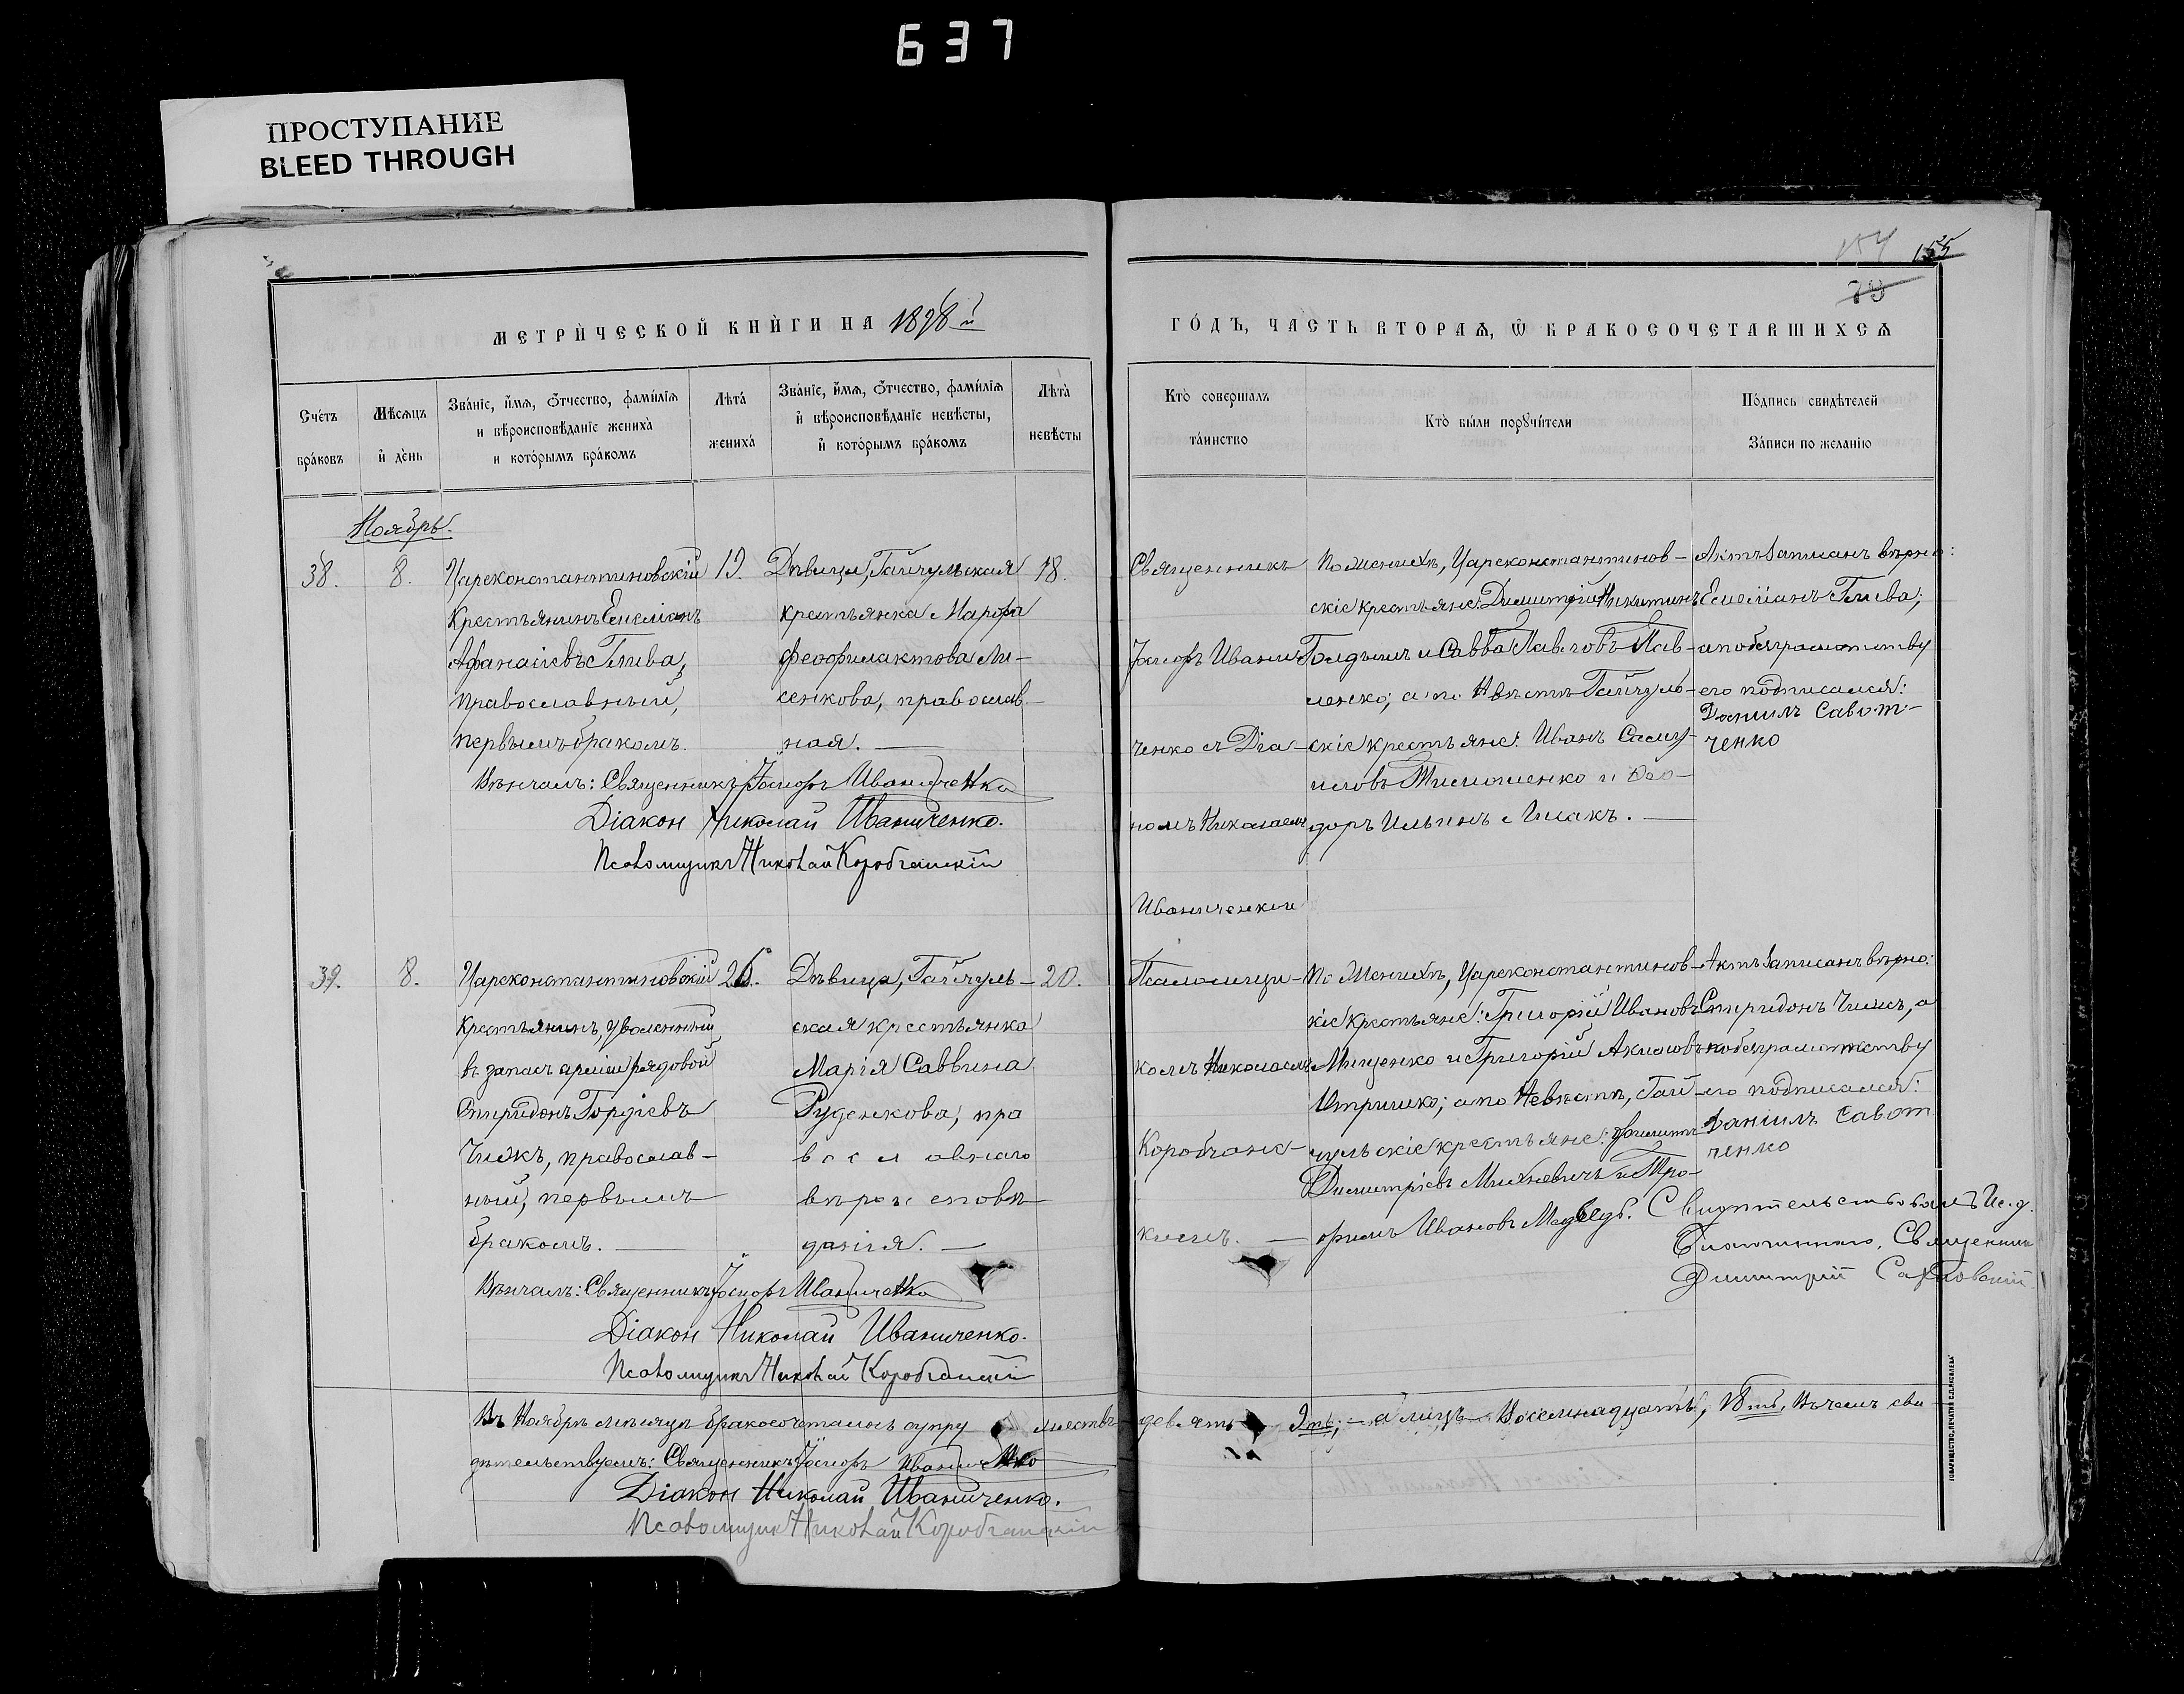 637
ПРОСТУПАНИЕ
BLEED THROUGH
154 155
73
МЕТРИ́ЧЕСКОЙ КНИ́ГИ НА 1898 й
ГО́ДЪ, ЧАСТЬ ВТОРАѦ, Ѿ БРАКОСОЧЕТАВШИХСѦ
Сче́тъ бра́ковъ
Мѣ́сѧцъ и҆ де́нь
Зва́нїе, и҆́мѧ, ѻ҆́тчество, фами́лїѧ и вѣроисповѣ́данїе жениха̀ и кото́рымъ бра́комъ
Лѣта́ жениха́
Зва́нїе, и҆́мѧ, ѻ҆́тчество, фами́лїѧ и҆ вѣроисповѣ́данїе невѣ́сты, и҆ кото́рымъ бра́комъ
Лѣта̀ невѣ́сты
Кто̀ соверша́лъ та́инство
Кто̀ бы́ли порꙋчи́тели
По́дпись свидѣ́телей За́писи по жела́нїю
Ноябрь.
38.
8.
Цареконстантиновскій
крестьянинъ Емеліанъ
Афанасіевъ Глива,
православный,
первымъ бракомъ.
19.
Дѣвица, Гайчульская
крестьянка Марфа
Феофилактова Ли-
сенкова, православ-
ная. —
18.
Священникъ
Іосифъ Ивани-
ченко съ Діа-
комъ Николаемъ
Иваниченкомъ
По Женихѣ, Цареконстантинов-
скіе крестьяне: Димитрій Никитинъ
Голдыш и Савва Павловъ Пав-
ленко; а по Невѣстѣ Гайчуль-
скіе крестьяне: Иванъ Саму-
иловъ Тимошенко и Фео-
доръ Ильинъ Лисакъ. —
Актъ записанъ вѣрно:
Емеліанъ Глива,
а по безграмотству
его подписался:
Даниилъ Савот-
ченко
Вѣнчалъ: Священникъ Іосифъ Иваниченко
Діакон Николай Иваниченко.
Псаломщикъ Николай Коробчанскій
39.
8.
Цареконстантиновскій
крестьянинъ, уволенный
въ запасъ арміи рядовой
Спиридонъ Гордіевъ
Чижъ, православ-
ный, первымъ
бракомъ. —
26.
Дѣвица, Гайчуль-
ская крестьянка
Марія Саввина
Руденкова, пра
вославнаго
вѣроисповѣ
данія. —
20.
Псаломщи-
комъ Николаемъ
Коробчанс-
кимъ. —
По Женихѣ, Цареконстантинов-
кіе крестьяне: Григорій Ивановъ
Мищенко и Григорій Акимовъ
а по Невѣстѣ, Гай-
чульскіе крестьяне:
Димитріевъ Михневичъ и Тро-
фимъ Ивановъ Медведь.
Актъ записанъ вѣрно:
Спиридонъ Чижъ, а
по безграмотству
его подписался:
Даніилъ Савот
ченко
Свидѣтельствовалъ Ис. д.
Благочиннаго, Священникъ
Димитрій
Вѣнчалъ: Священникъ Іосифъ Иваниченко
Діакон Николай Иваниченко.
Псаломщикъ Николай Коробчанскій
Въ Ноябрѣ мѣсяцѣ бракосочеталось супру жествъ девять 9ть; — а лицъ — Восемнадцать, 18ть, Въ чемъ сви-
дѣтельствуемъ: Священникъ Іосифъ Иваниченко
Діакон Николай Иваниченко.
Псаломщикъ Николай Коробчанскій